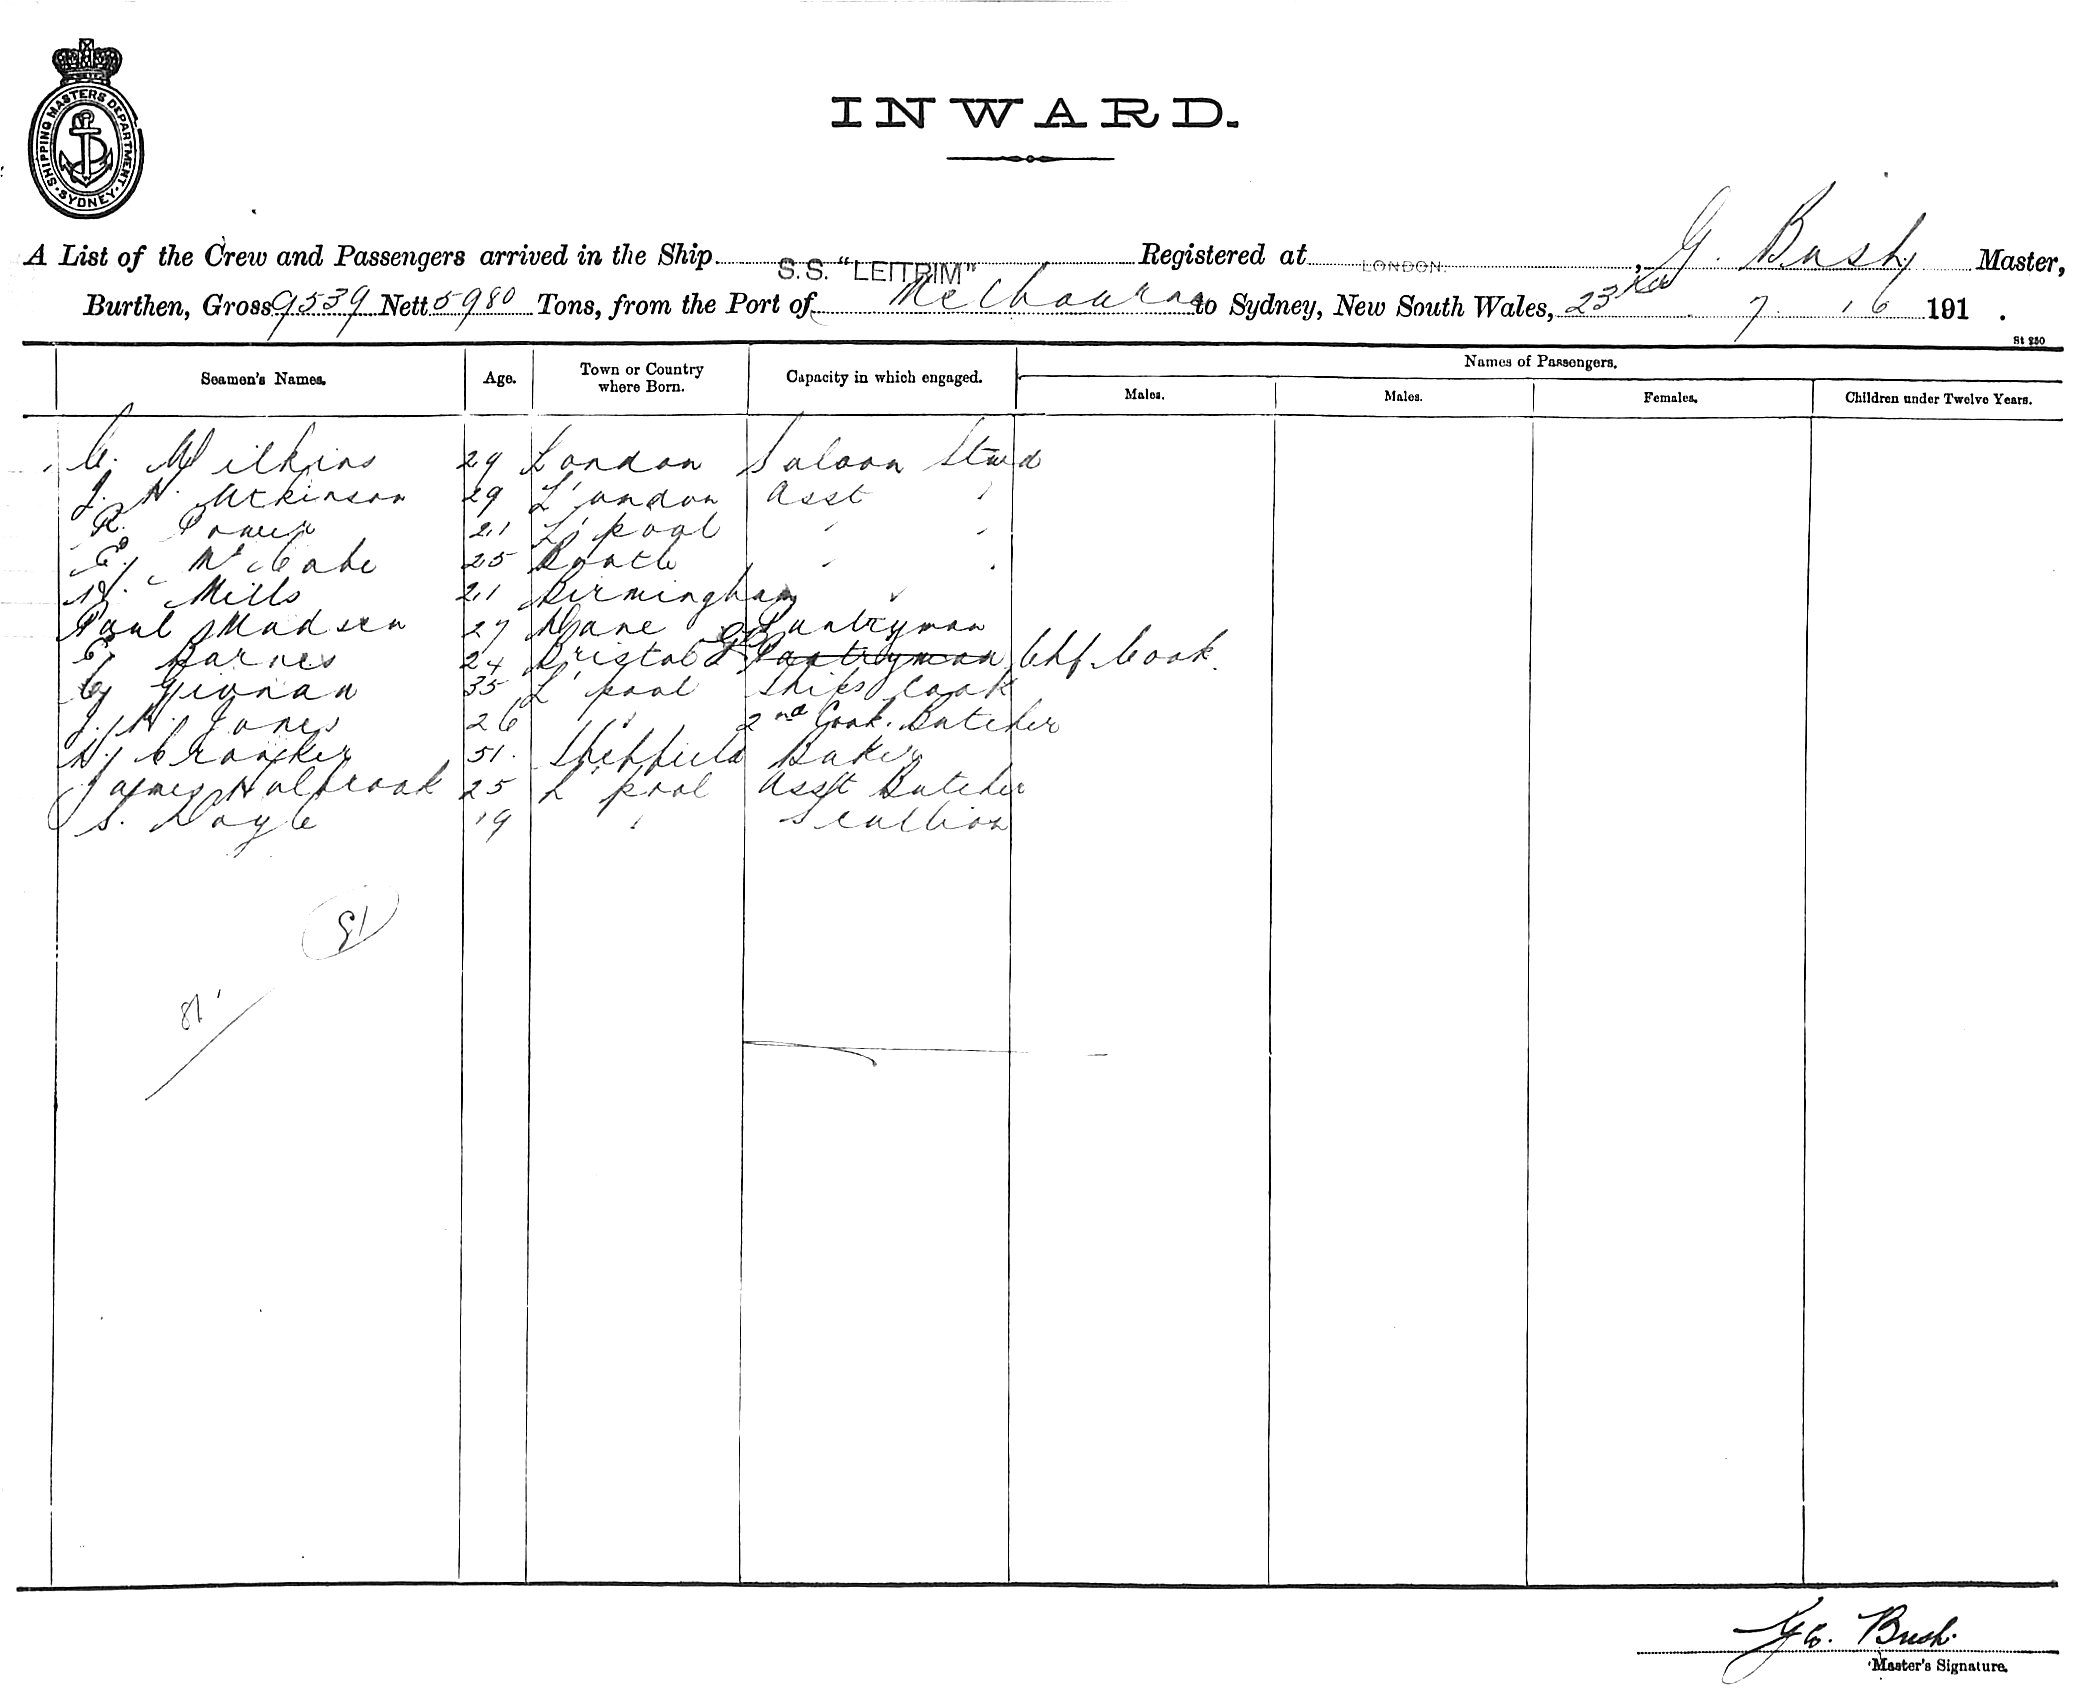 SHIPPING MASTERS DEPARTMENT · SYDNEY ·
INWARD.
A List of the Crew and Passengers arrived in the Ship S.S. "LEITRIM" Registered at LONDON. , G. Bush Master,
Burthen, Gross 9539 Nett 5980 Tons, from the Port of Melbourne to Sydney, New South Wales, 23rd 7 16 191 .
St 250
Seamen's Names. Age. Town or Country where Born. Capacity in which engaged. Names of Passengers.
Males. Males. Females. Children under Twelve Years.
C. Wilkins 29 London Saloon Stwd
J. H. Atkinson 29 London Asst "
R. Power 21 L'pool " "
E. McCabe 25 Bootle " "
Mills 21 Birmingham "
Paul Madsen 27 Dane Pantryman
Barnes 24 Bristol Pantryman Chf. Cook.
35 L'pool Ships Cook
J. H. Jones 26 " 2nd Cook. Butcher
51. Sheffield Baker
James Holbrook 25 L'pool Asst Butcher
S. Doyle 19 " Scullion
81
Geo. Bush.
Master's Signature.